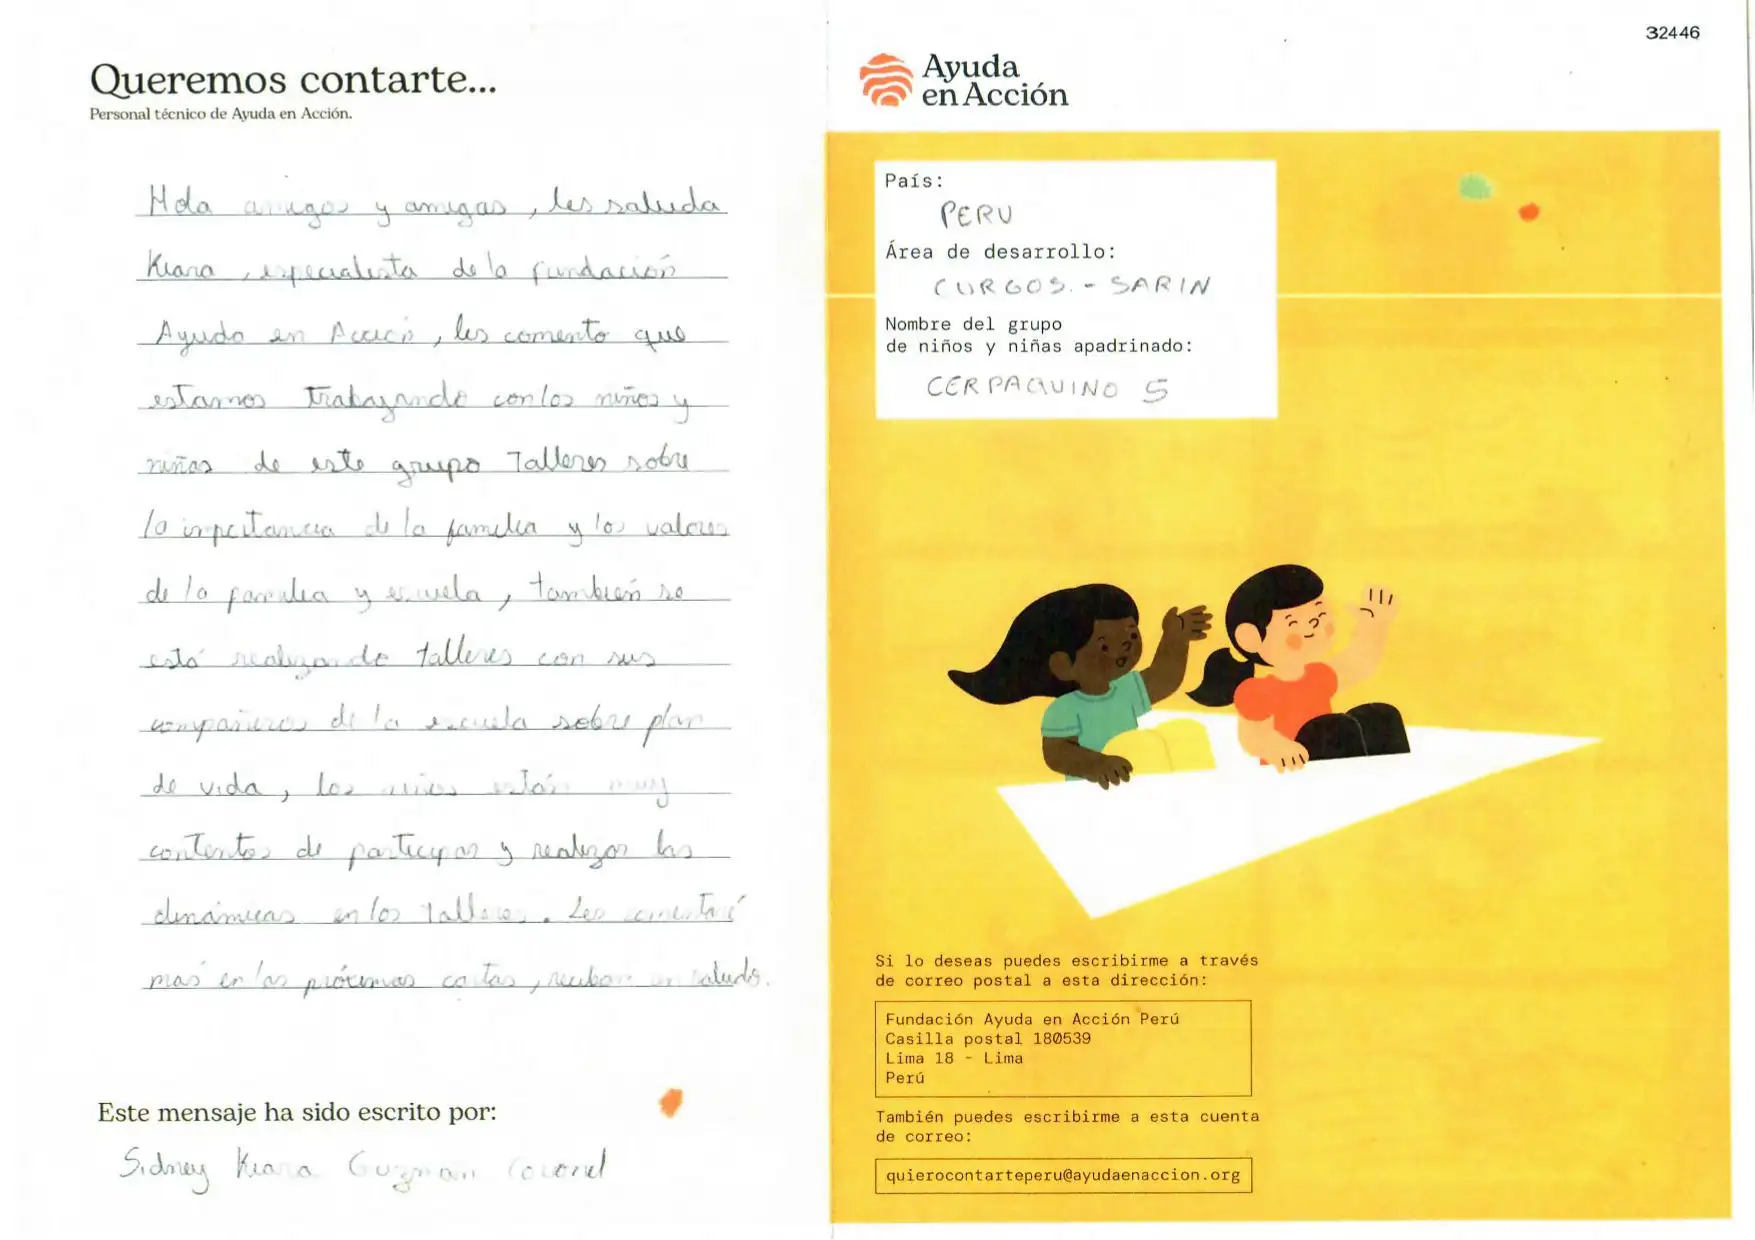 Queremos contarte...
Personal técnico de Ayuda en Acción.
Hola amigos y amigas, les saluda
Kiara, especialista de la fundación
Ayuda en Acción, les comento que
estamos trabajando con los niños y
niñas de este grupo Talleres sobre
la importancia de la familia y los valores
de la familia y escuela, también se
está realizando talleres con sus
compañeros de la escuela sobre plan
de vida, los niños están muy
contentos de participar y realizar las
dinámicas en los talleres. Les comentaré
mas en las próximas cartas, reciban un saludo.
Este mensaje ha sido escrito por:
Sidney Kiara Guzmán Coronel
32446
Ayuda
en Acción
País:
PERU
Área de desarrollo:
CURGOS - SARIN
Nombre del grupo
de niños y niñas apadrinado:
CERPAQUINO 5
Si lo deseas puedes escribirme a través
de correo postal a esta dirección:
Fundación Ayuda en Acción Perú
Casilla postal 180539
Lima 18 - Lima
Perú
También puedes escribirme a esta cuenta
de correo:
quierocontarteperu@ayudaenaccion.org